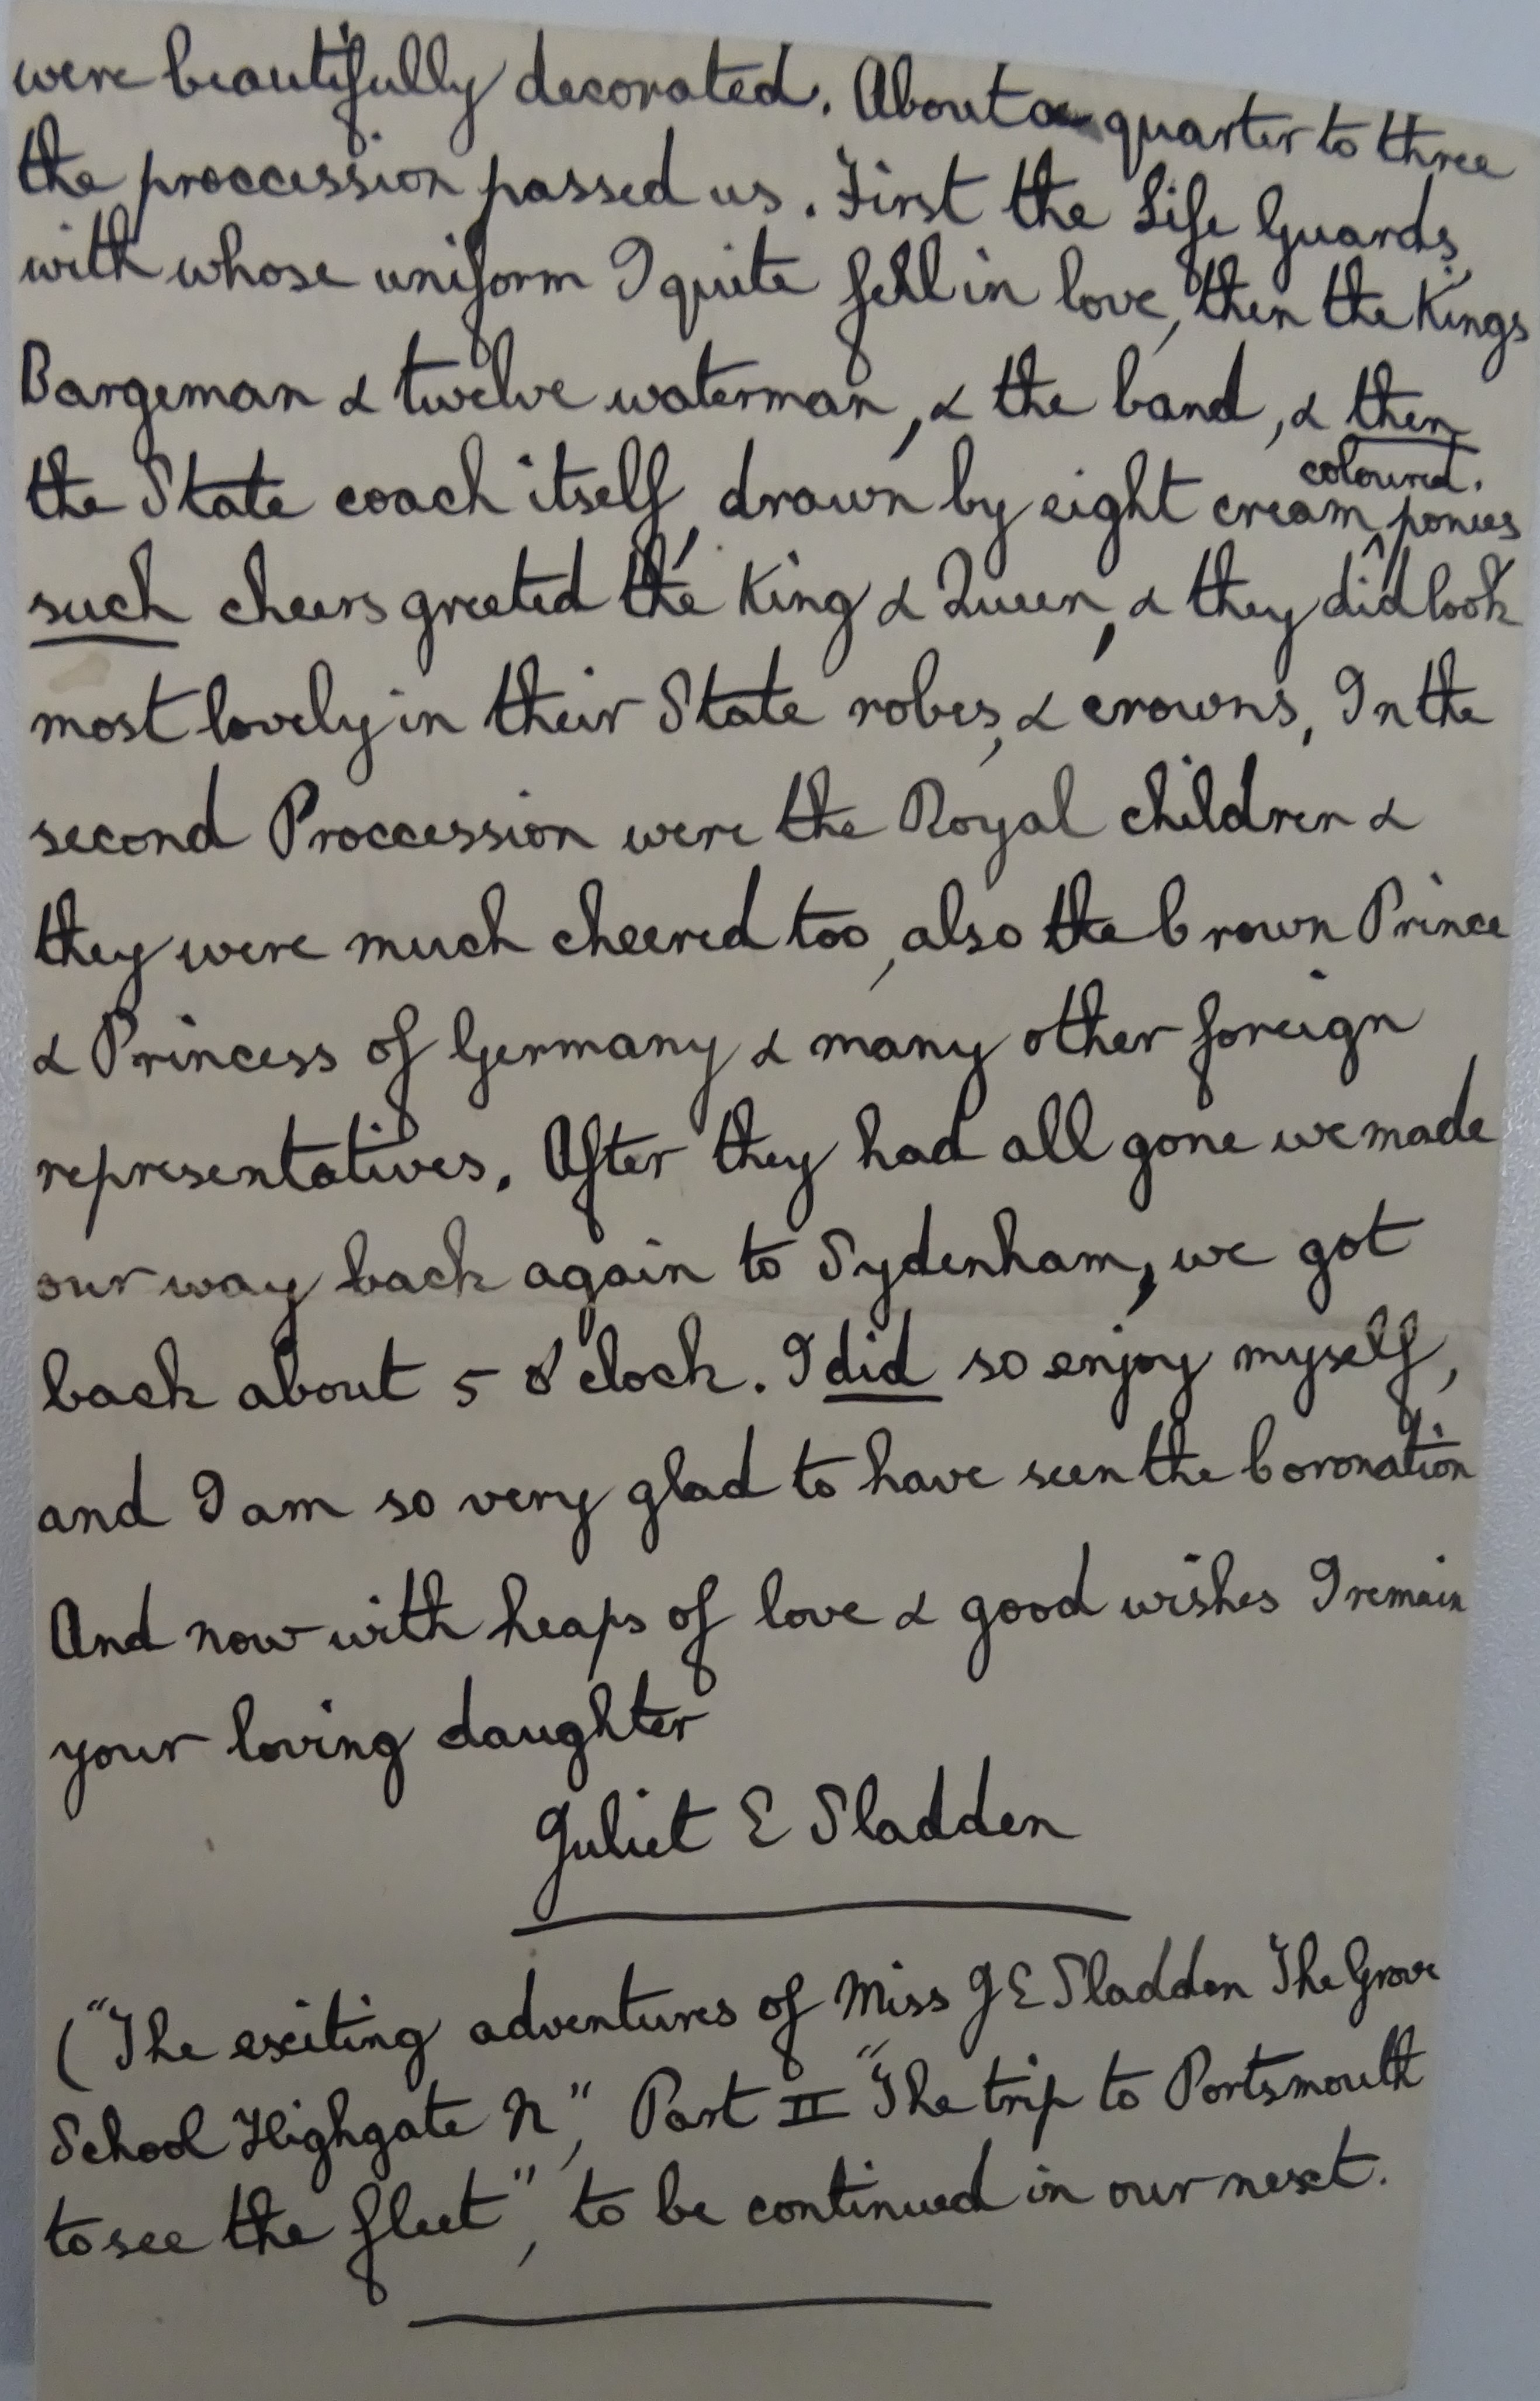 were beautifully decorated. About a quarter to three
the proccession passed us. First the Life Guards,
with whose uniform I quite fell in love, then the Kings
Bargeman & twelve waterman, & the band, & then
the State coach itself, drawn by eight cream coloured. ponies
such cheers greeted the King & Queen, & they did look
most lovely in their State robes, & crowns, In the
second Proccession were the Royal children &
they were much cheered too, also the brown Prince
& Princess of Germany & many other foreign
representatives. After they had all gone we made
our way back again to Sydenham, we got
back about 5 o'clock. I did so enjoy myself,
and I am so very glad to have seen the Coronation
And now with heaps of love & good wishes I remain
your loving daughter
Juliet E Sladden
("The exciting adventures of Miss J E Sladden The Grove
School Highgate N", Part II "The trip to Portsmouth
to see the fleet", to be continued in our next.